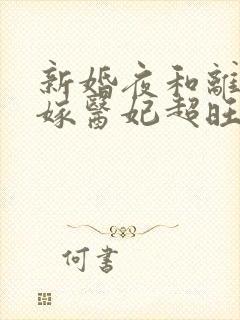 新婚夜和離
嫁醫妃超旺
何書